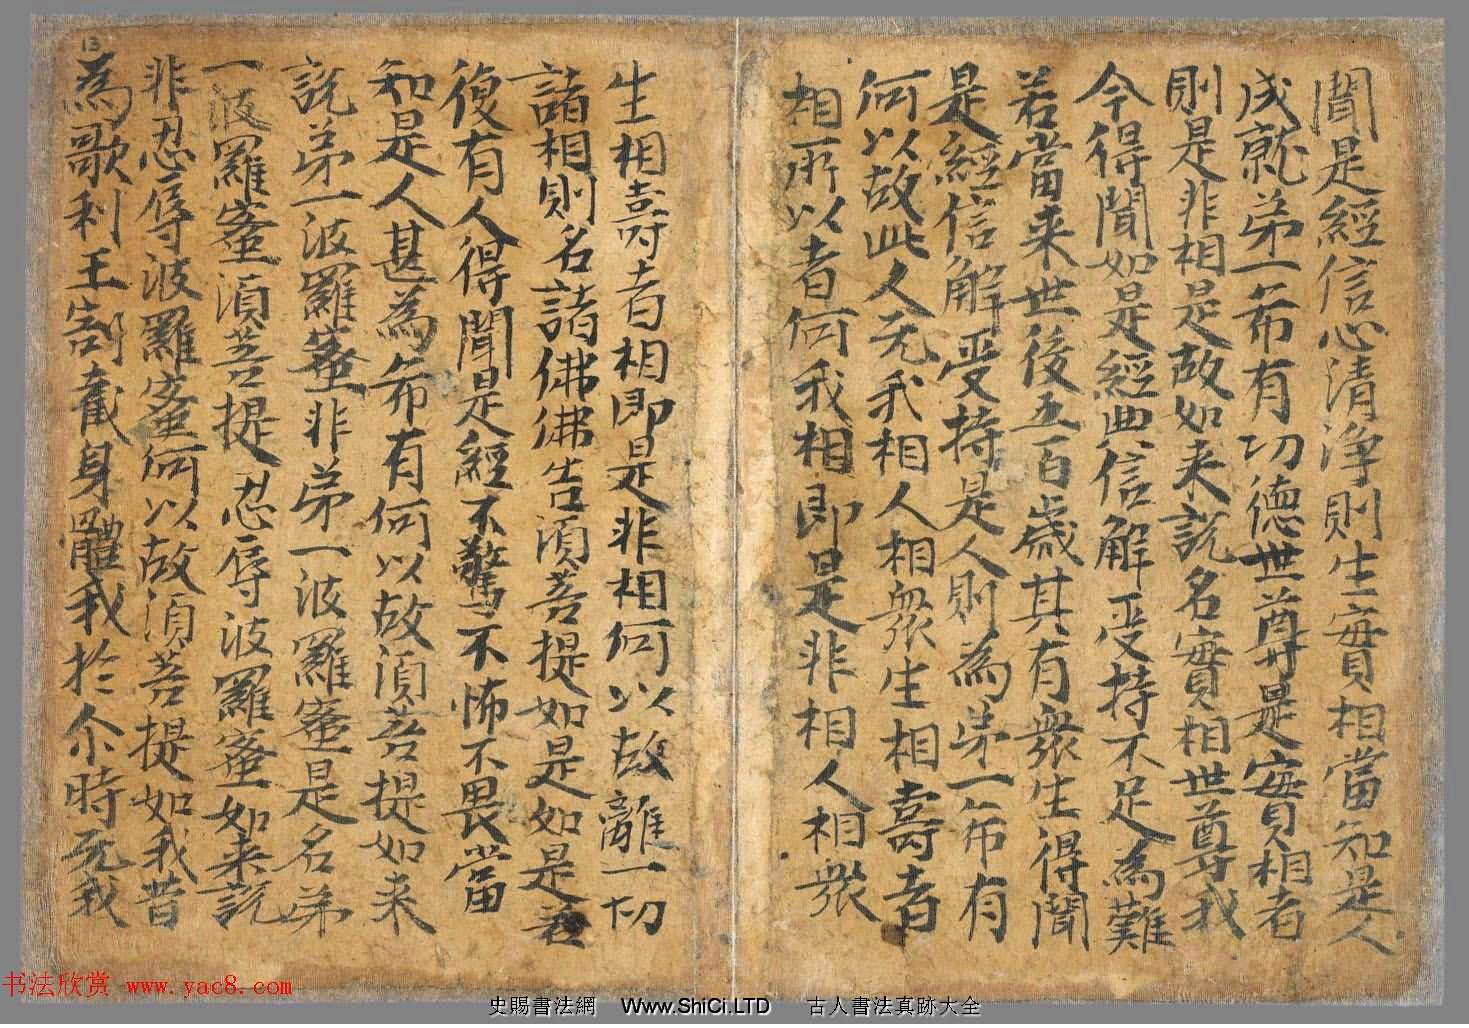 聞是經信心清淨則生實相當知是人
成就第一希有功德世尊是實相者
則是非相是故如来說名實相世尊我
今得聞如是經典信解受持不足為難
若當来世後五百歲其有衆生得聞
是經信解受持是人則為第一希有
何以故此人无我相人相衆生相壽者
相所以者何我相即是非相人相衆
生相壽者相即是非相何以故離一切
諸相則名諸佛佛告須菩提如是如是若
復有人得聞是經不驚不怖不畏當
知是人甚為希有何以故須菩提如来
說弟一波羅蜜非弟一波羅蜜是名弟
一波羅蜜須菩提忍辱波羅蜜如来說
非忍辱波羅蜜何以故須菩提如我昔
為歌利王割截身體我於尒時无我
13
书法欣赏 www.yac8.com
史賜書法網 Www.ShiCi.LTD 古人書法真跡大全